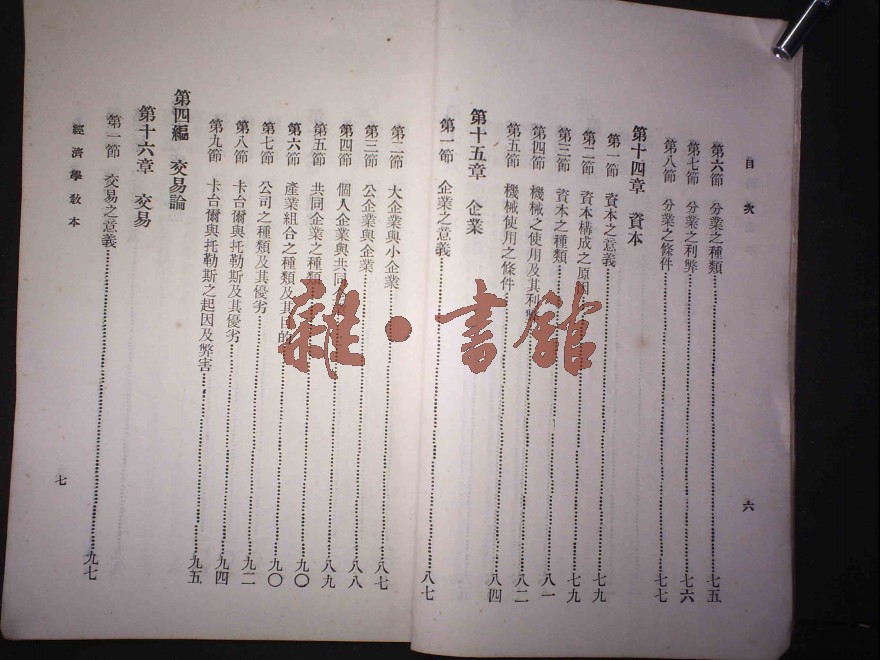 目次
第六節 分業之種類……七五
第七節 分業之利弊……七六
第八節 分業之條件……七七
第十四章 資本
第一節 資本之意義……七九
第二節 資本構成之原因……七九
第三節 資本之種類……八一
第四節 機械之使用及其利弊……八二
第五節 機械使用之條件……八四
第十五章 企業
第一節 企業之意義……八七
六
第二節 大企業與小企業……八七
第三節 公企業與企業……八八
第四節 個人企業與共同……八九
第五節 共同企業之種類……九〇
第六節 產業組合之種類及其目的……九〇
第七節 公司之種類及其優劣……九二
第八節 卡台爾與托勒斯及其優劣……九四
第九節 卡台爾與托勒斯之起因及弊害……九五
第四編 交易論
第十六章 交易
第一節 交易之意義……九七
經濟學敎本
七
雜·書館